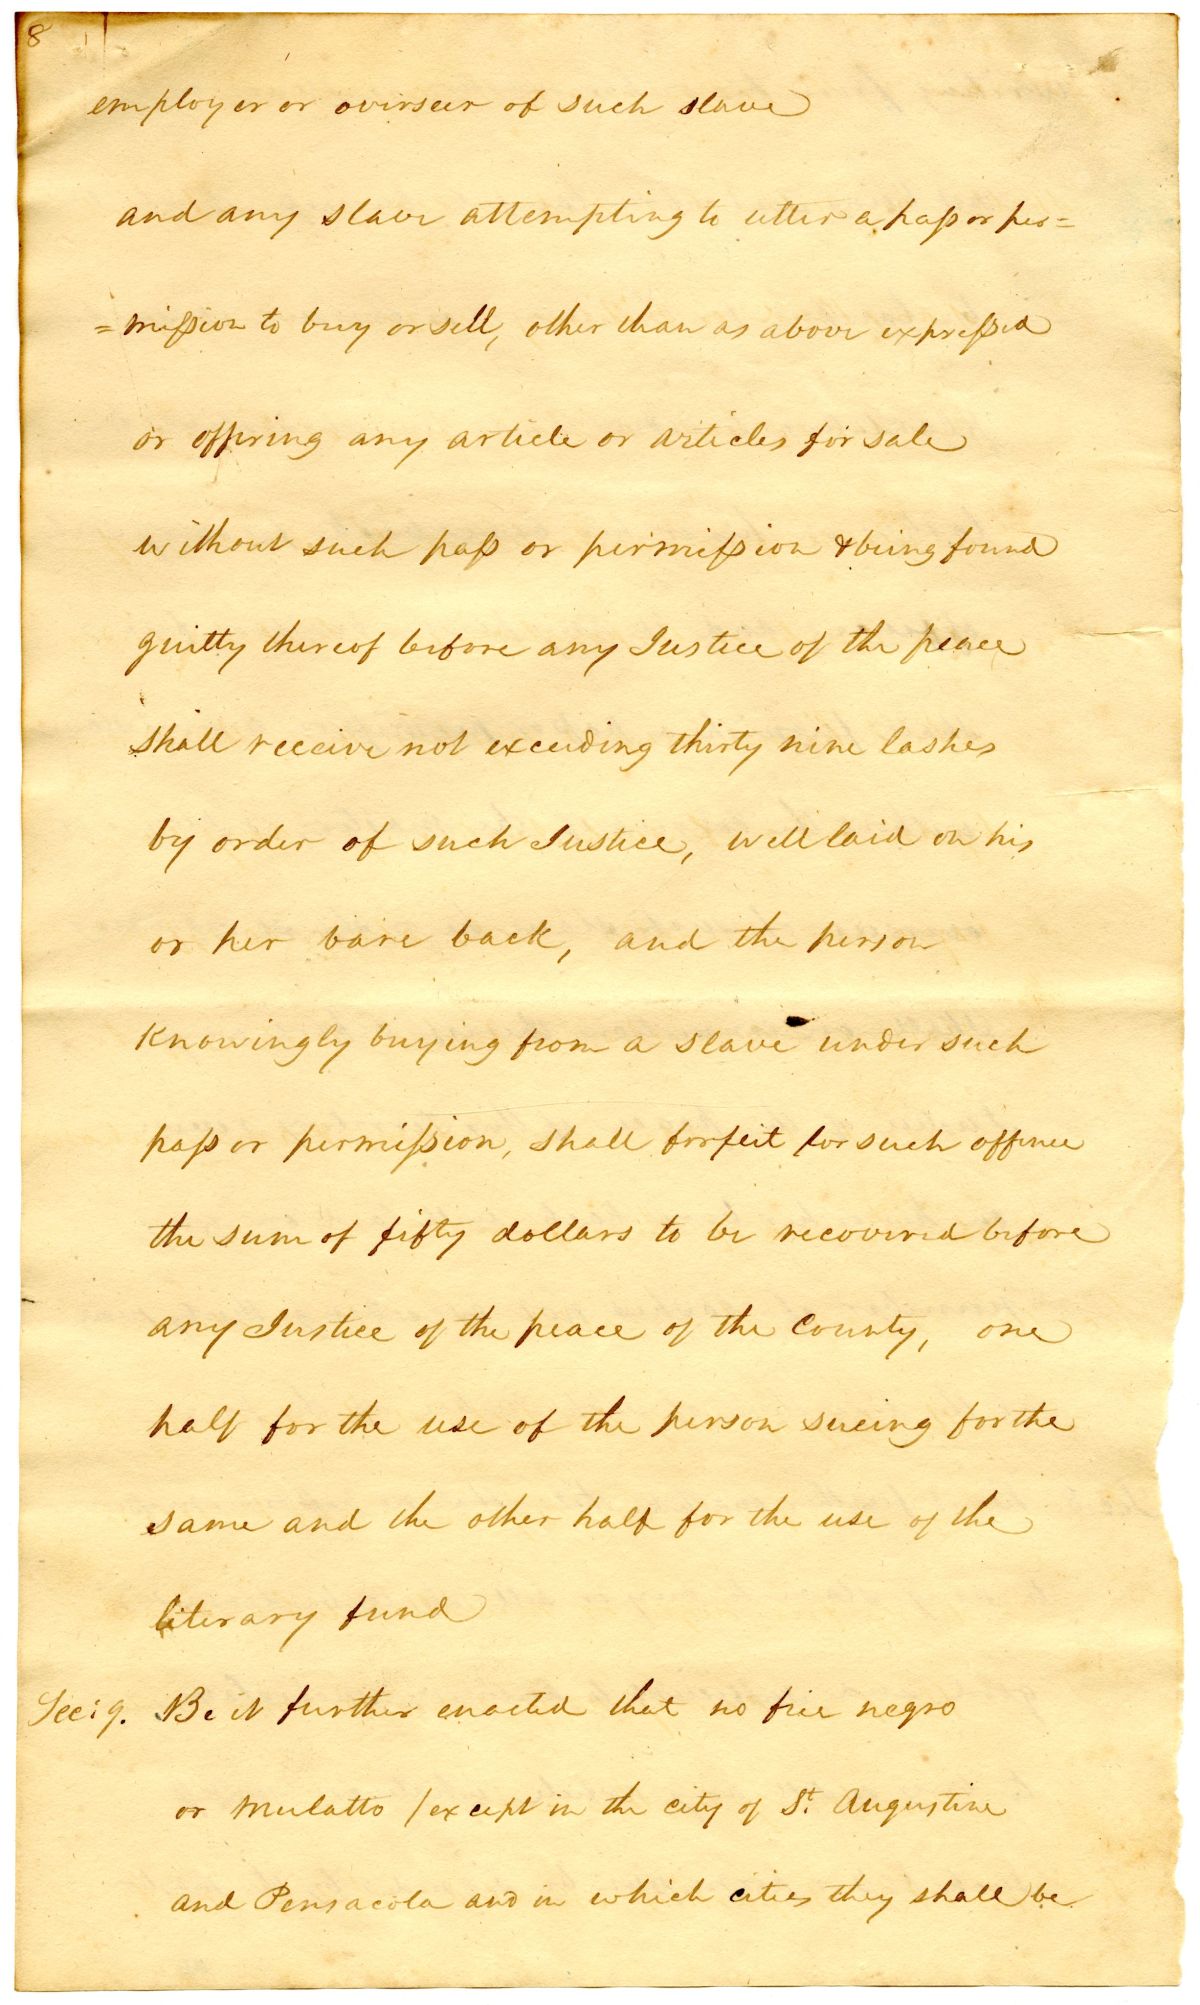 8
employer or overseer of such slave
and any slave attempting to utter a paſs or per=
=miſsion to buy or sell, other than as above expreſsed
or offering any article or articles for sale
without such paſs or permiſsion & being found
guilty thereof before any Justice of the peace
shall receive not exceeding thirty nine lashes
by order of such Justice, well laid on his
or her bare back, and the person
Knowingly buying from a slave under such
paſs or permiſsion, shall forfeit for such offence
the sum of fifty dollars to be recovered before
any Justice of the peace of the County, one
half for the use of the person sueing for the
same and the other half for the use of the
literary fund
Sec: 9. Be it further enacted that no free negro
or Mulatto /except in the city of St. Augustine
and Pensacola and in which cities they shall be